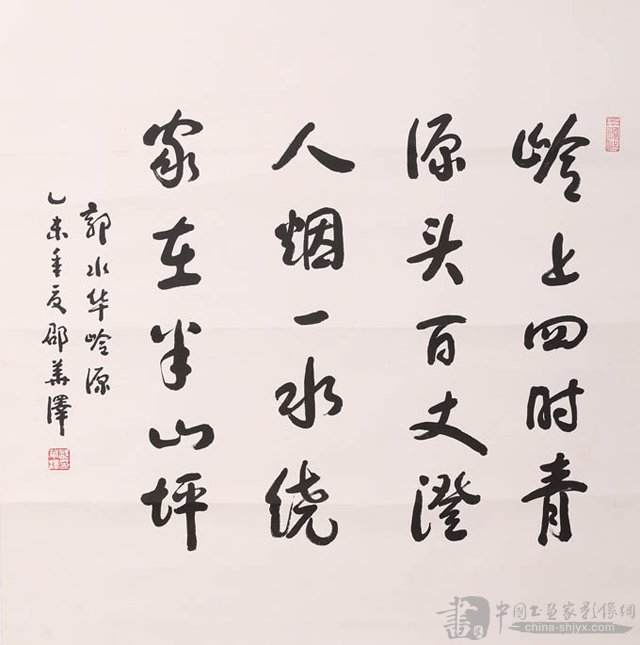 岭上四时青
源头百丈澄
人烟一水绕
家在半山坪
郭水华岭源
乙未季夏邵华泽
中国书画家影像网
china-shjyx.com